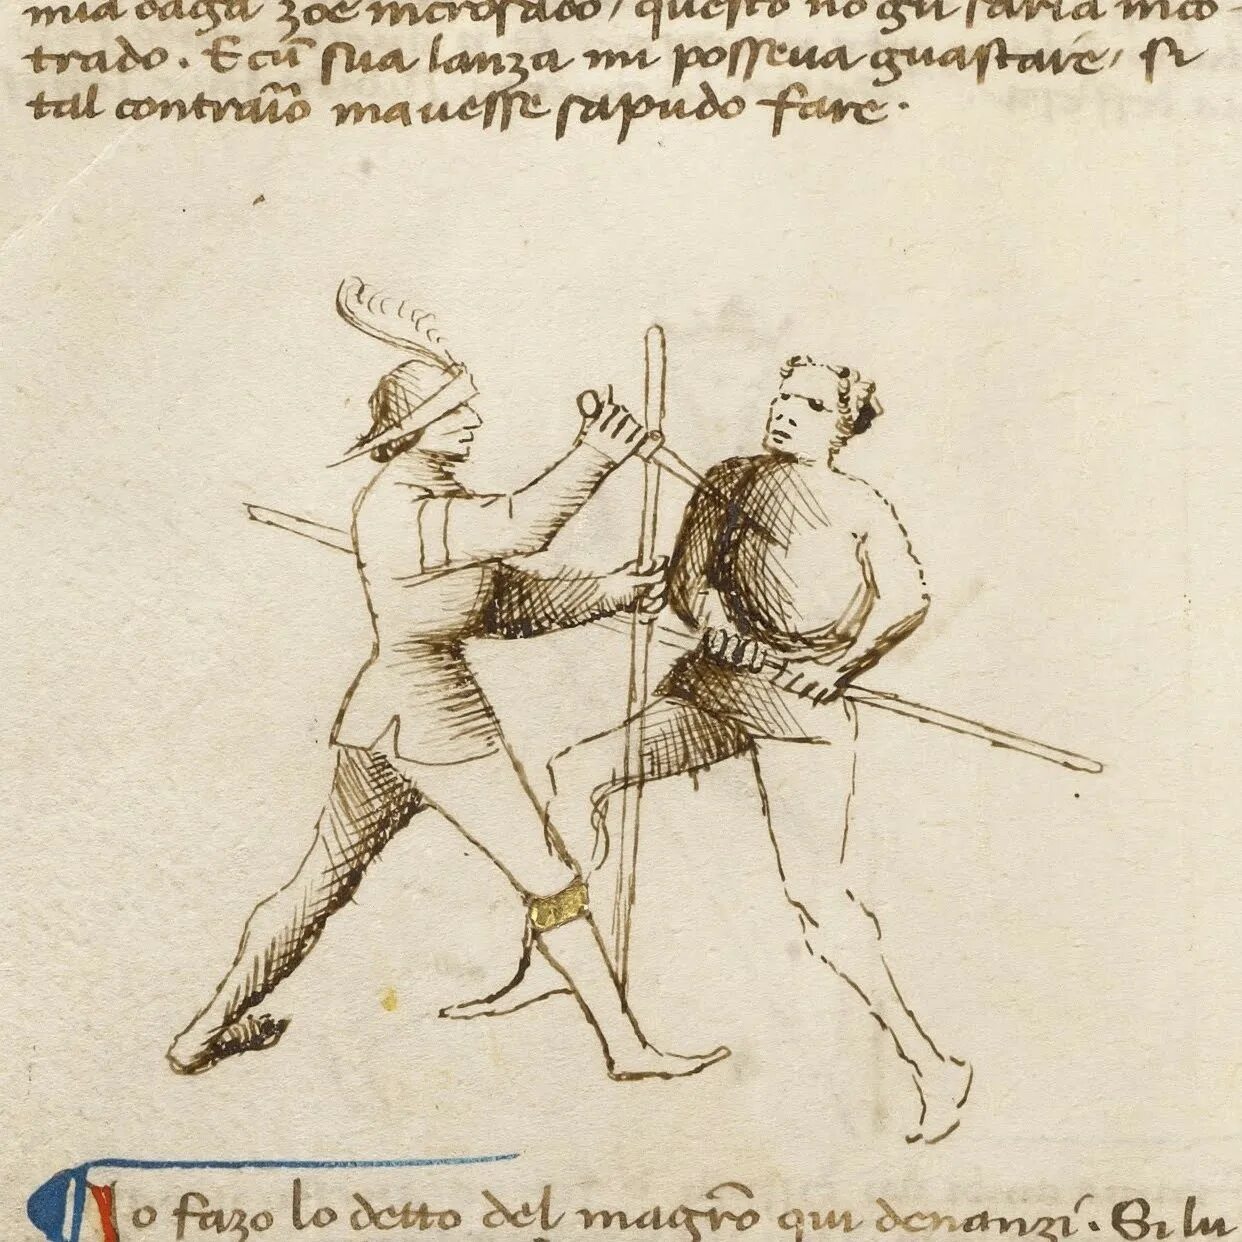 mia daga zoe incrosado, questo nō gli saria inco-
trado. E cū sua lanza mi posseva guastare, si
tal contraīo mavesse sapudo fare.
Io fazo lo detto del magrō qui denanzi. Si lu